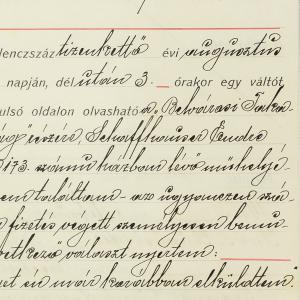 lenczszáz tizenkettő évi augusztus
napján, dél után 3. órakor egy váltót
ulsó oldalon olvasható a „Belvárosi Taka
ág" részére, Schaffhauser Endre
173. számú házban lévő műhelyé-
em találtam - az ugyanezen szá-
a fizetés végett személyesen bemu-
vetkező választ nyertem:
et én már korábban elküldöttem."